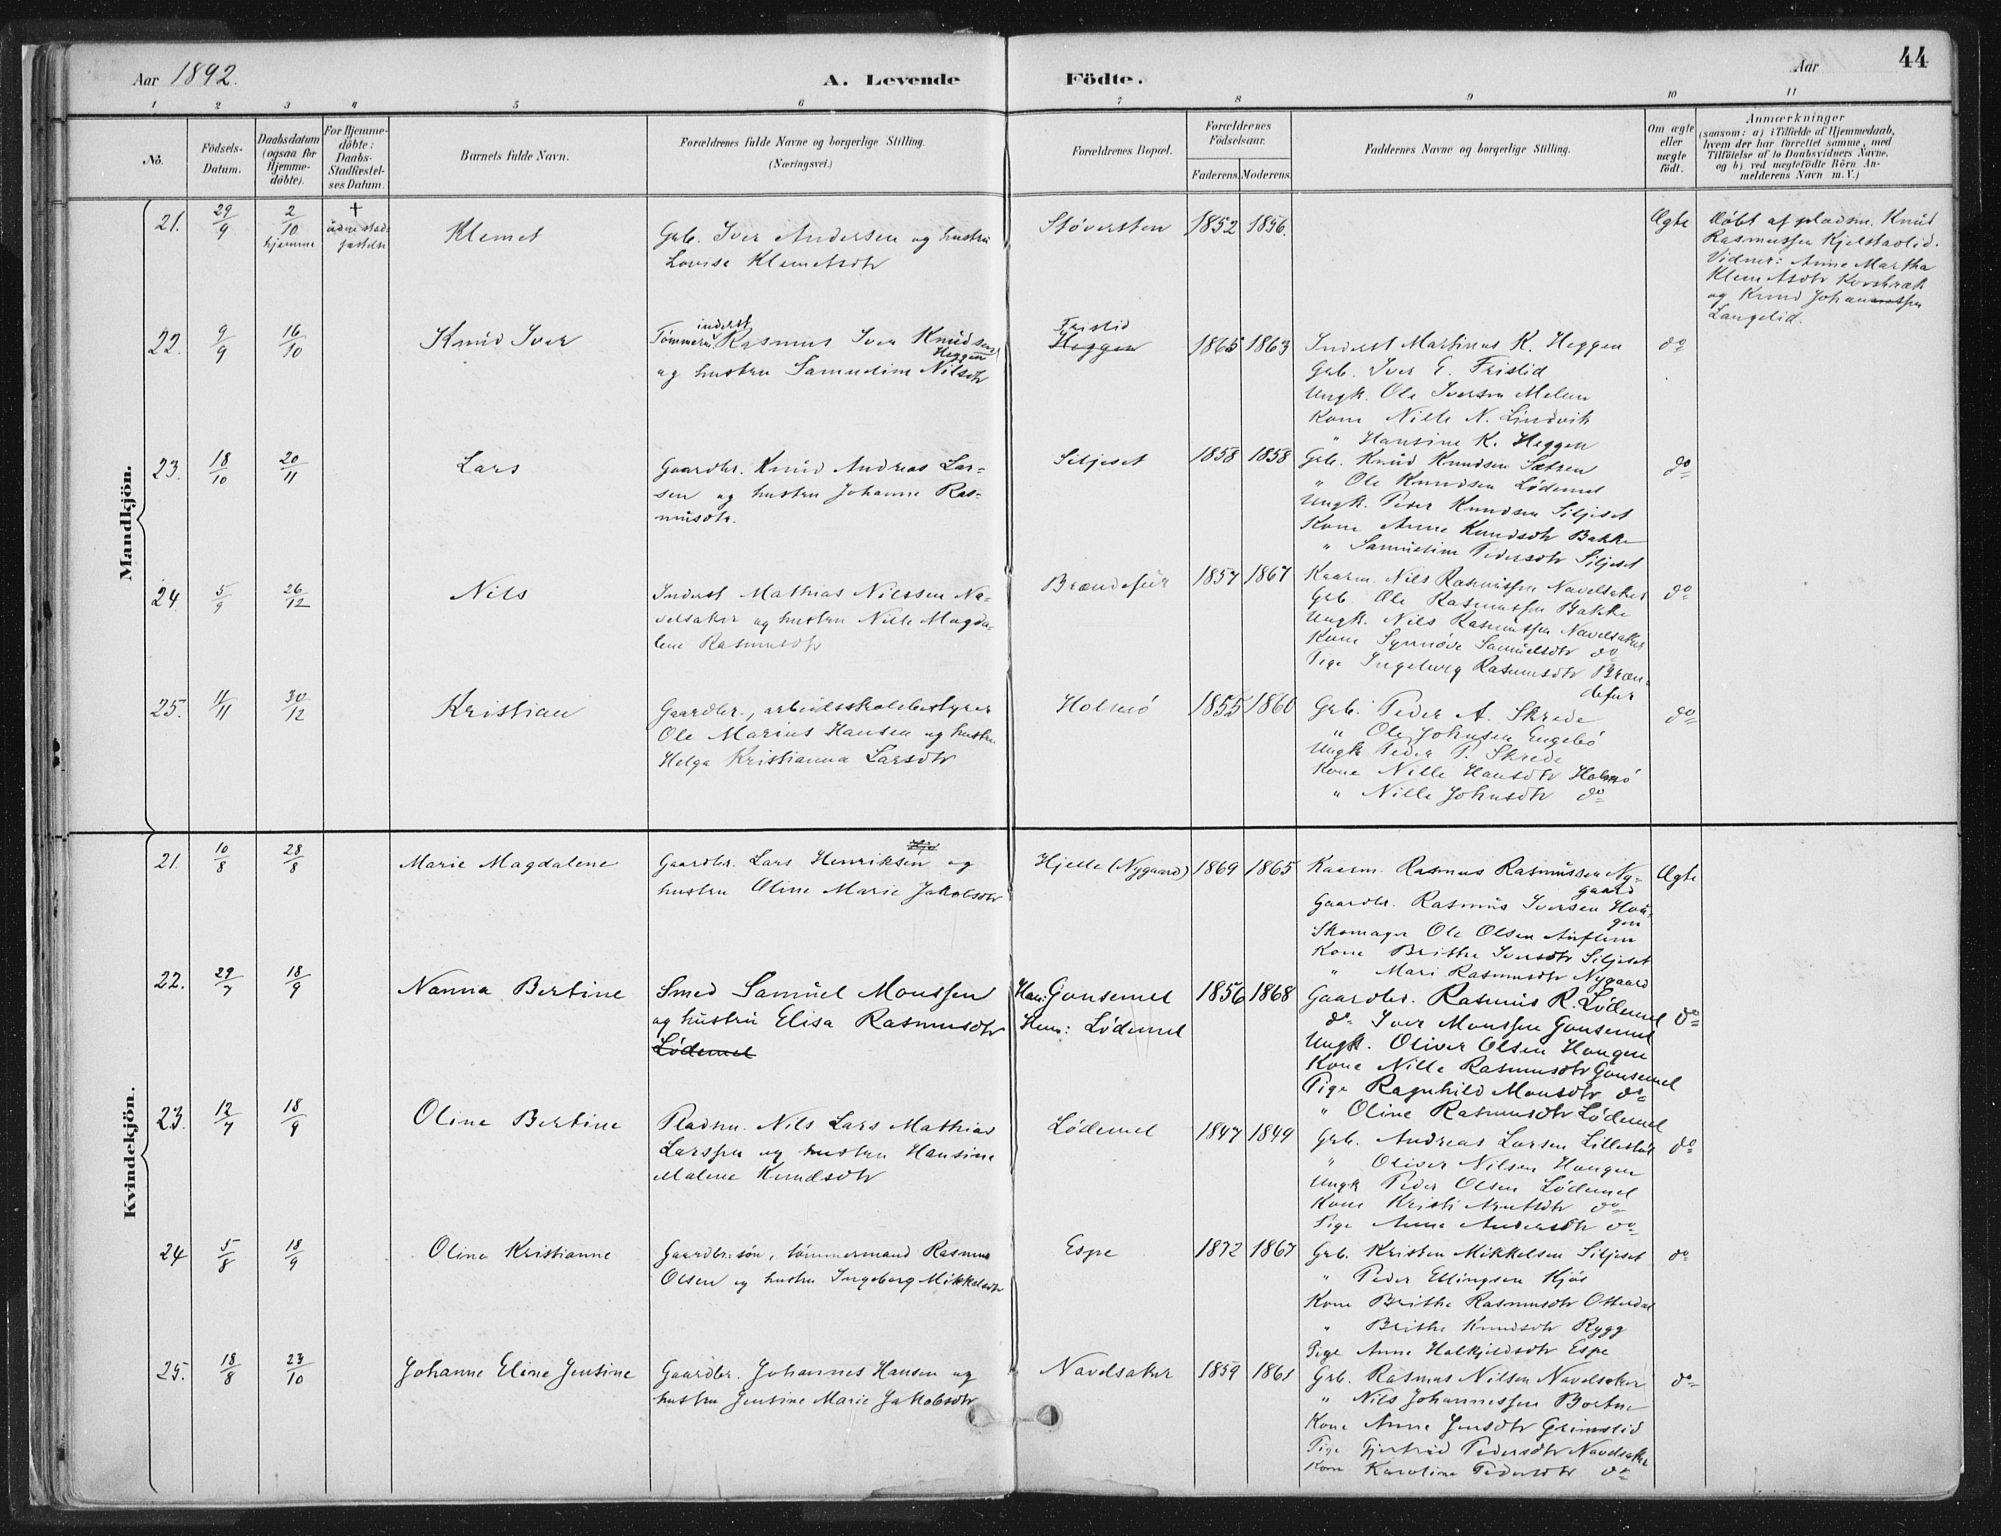 Aar 1892.
A. Levende Födte.
Aar
44
1 2 3 4 5 6 7 8 9 10 11
No.
Födsels-Datum.
Daabsdatum (ogsaa for Hjemme-döbte).
For Hjemme-döbte: Daabs-Stadfæstel-ses Datum.
Barnets fulde Navn.
Forældrenes fulde Navne og borgerlige Stilling.
(Næringsvei.)
Forældrenes Bopæl.
Forældrenes Födselsaar.
Faderens. Moderens.
Faddernes Navne og borgerlige Stilling.
Om ægte eller uægte födt.
Anmærkninger
(saasom: a) i Tilfælde af Hjemmedaab,
hvem der har forrettet samme, med
Tilföielse af to Daabsvidners Navne,
og b) ved uægtefödte Börn An-
melderens Navn m. V.)
Mandkjön.
21. 29/9 2/10 hjemme † uden stadfæstelse
Klemet
Grb. Iver Andersen og hustru
Lovise Klemetsdtr
Støversten 1852 1856.
Ægte
Døbt af pladsm. Knud
Rasmussen Kjelstadlid.
Vidner: Anne Martha
Klemetsdtr
og Knud Johannessen
Langelid.
22. 9/9 16/10
Knud Iver
inderst
Tømmerm. Rasmus Iver Knudsen
Heggen
og hustru Samudine Nilsdtr
Fristid
Heggen
1865 1863
Inderst Martinus K. Heggen
Grb. Iver E. Fristid
Ungk. Ole Iversen Melem
Kone Nille N. Lindvik
" Hansine K. Heggen
do
23. 18/10 20/11
Lars
Gaardbr. Knud Andreas Lar-
sen og hustru Johanne Ras-
musdtr.
Siljeset 1858 1858
Grb. Knud Knudsen Sætren
" Ole Knudsen Lødemel
Ungk. Peder Knudsen Siljeset
Kone Anne Knudsdtr Bakke
" Samusine Pedersdtr Siljeset
do
24 5/9 26/12
Nils
Inderst Mathias Nilssen Na-
velsaker og hustru Nille Magda-
lene Rasmusdtr
Brændefur 1857 1867
Kaarm. Nils Rasmussen Navelsaker
Grb. Ole Rasmussen Bakke
Ungk. Nils Rasmussen Navelsaker
Kone Synnøve Samuelsdtr do
Pige Ingeborg Rasmusdtr Bræn-
defur
do
25. 11/11 30/12
Kristian
Gaardbr., arbeidsskolebestyrer
Ole Marius Hansen og hustru
Helga Kristianna Larsdtr
Holmø 1855 1860
Grb. Peder A. Skrede
" Ole Johnsen Engebø
Ungk Peder P. Skrede
Kone Nille Hansdtr Holmø
" Nille Johnsdtr do
do
Kvindekjön.
21. 10/8 28/8
Marie Magdalene
Gaardbr. Lars Henriksen og
hustru Oline Marie Jakobsdtr
Hjelle (Nygaard) 1869 1865
Kaarm. Rasmus Rasmussen Ny-
gaard
Gaardbr. Rasmus Iversen Hou-
gen
Skomager Ole Olsen Auflem
Kone Brithe Iversdtr Siljeset
" Mari Rasmusdtr Nygaard
Ægte
22. 29/7 18/9
Nanna Bertine
Smed Samuel Monssen
og hustru Elisa Rasmusdtr
Lødemel
Han: Gousemel
Hun: Lødemel
1856 1868
Gaardbr. Rasmus R. Lødemel
do Iver Monssen Gousemel
Ungk. Oliver Olsen Hougen
Kone Nille Rasmusdtr Gousemel
Pige Ragnhild Monsdtr do
" Oline Rasmusdtr Lødemel
do
23. 12/7 18/9
Oline Bertine
Pladsm. Nils Lars Mathias
Larssen og hustru Hansine
Malene Knudsdtr
Lødemel 1847 1849
Grb. Andreas Larsen Lillestøl
" Oliver Nilsen Hougen
Ungk Peder Olsen Lødemel
Kone Kristi do
Pige Anne Andersdtr do
do
24 5/8 18/9
Oline Kristianne
Gaardbr.søn, tømmermand Rasmus
Olsen og hustru Ingeborg Mikkelsdtr
Espe 1872 1867
Grb. Kristen Mikkelsen Siljeset
" Peder Ellingsen Kjøs
Kone Brithe Rasmusdtr Otterdal
" Brithe Knudsdtr Rygg
Pige Anne Halkjeldsdtr Espe
do
25. 18/8 23/10
Johanne Eline Jensine
Gaardbr. Johannes Hansen og
hustru Jensine Marie Jakobsdtr
Navelsaker 1859 1861
Grb. Rasmus Nilsen Navelsaker
" Nils Johannessen Bortne
Kone Anne Jensdtr Grimstid
Pige Gjertrud Pedersdtr Navelsaker
Kone Karoline Pedersdtr do
do